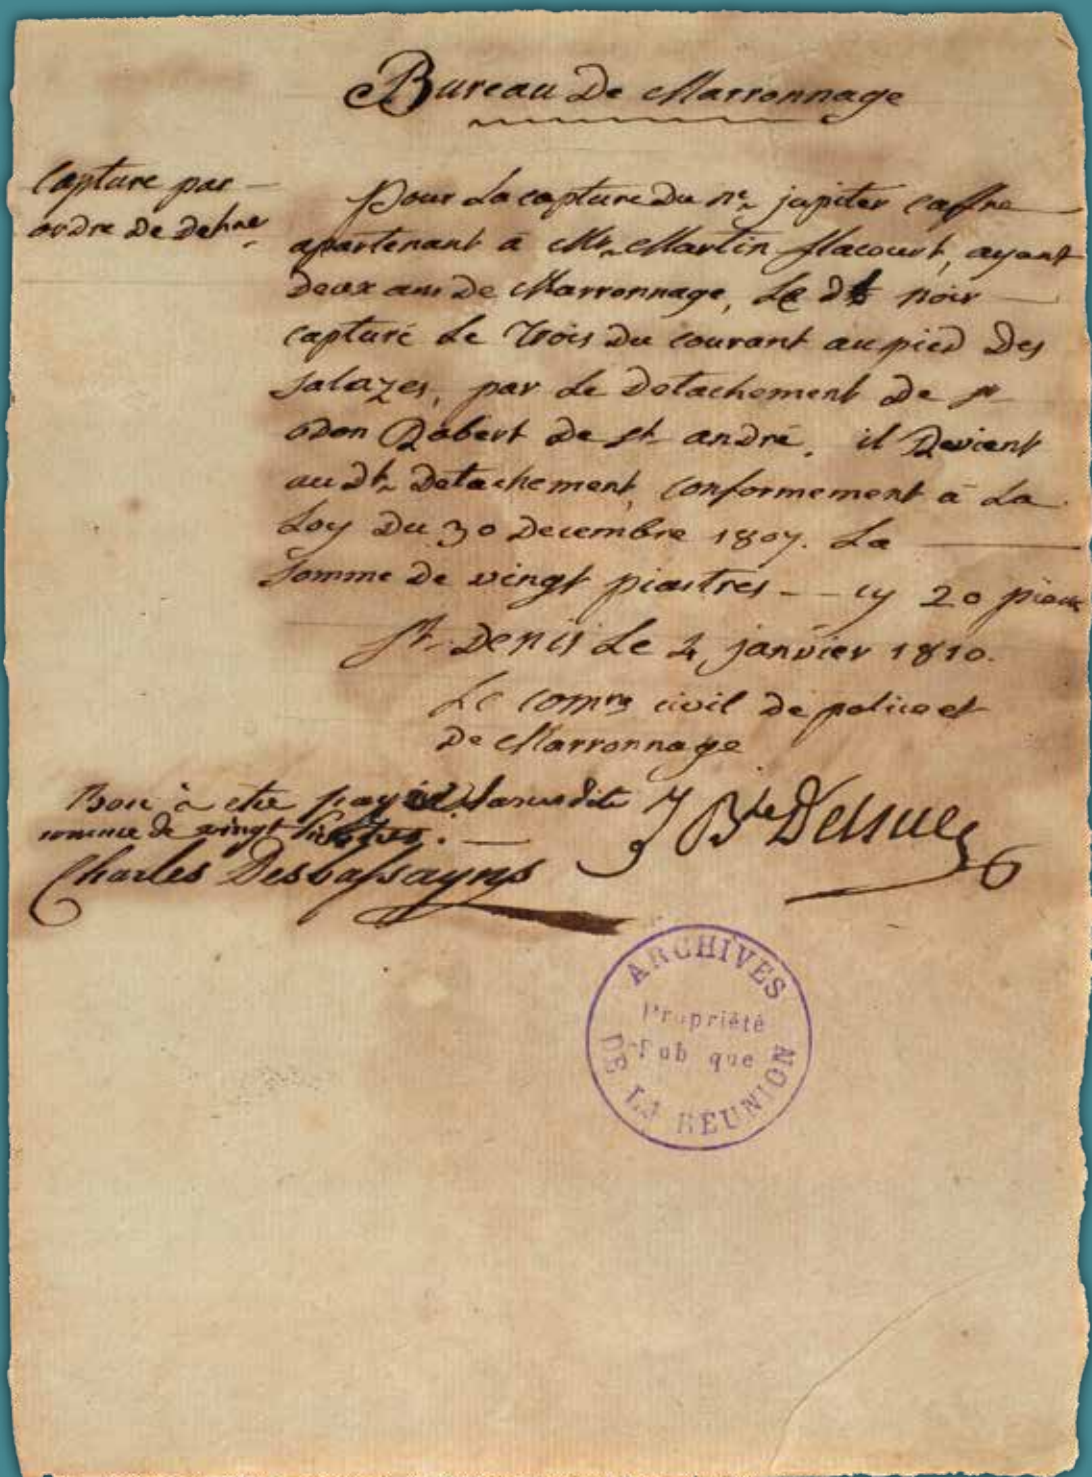 Bureau De Marronnage
Capture par
ordre de
Pour La capture Du nre jupiter Caffre
apartenant à Mr Martin flacourt, ayant
Deux ans De Marronnage, Le dt noir
capturé Le Trois Du courant au pied Des
Salazes, par Le Detachement De sr
odon Robert De St andré. il Revient
au dt Detachement, conformement à La
Loy Du 30 Decembre 1807. La
Somme De vingt piastres - - cy 20
St Denis Le 4 janvier 1810.
Le Comre civil De police et
De Marronnage
Bon à etre payé la susdite
somme de vingt Piastres.
J Bte Delsuc
Charles Desbassayns
ARCHIVES
Propriété
Pub que
DE LA RÉUNION